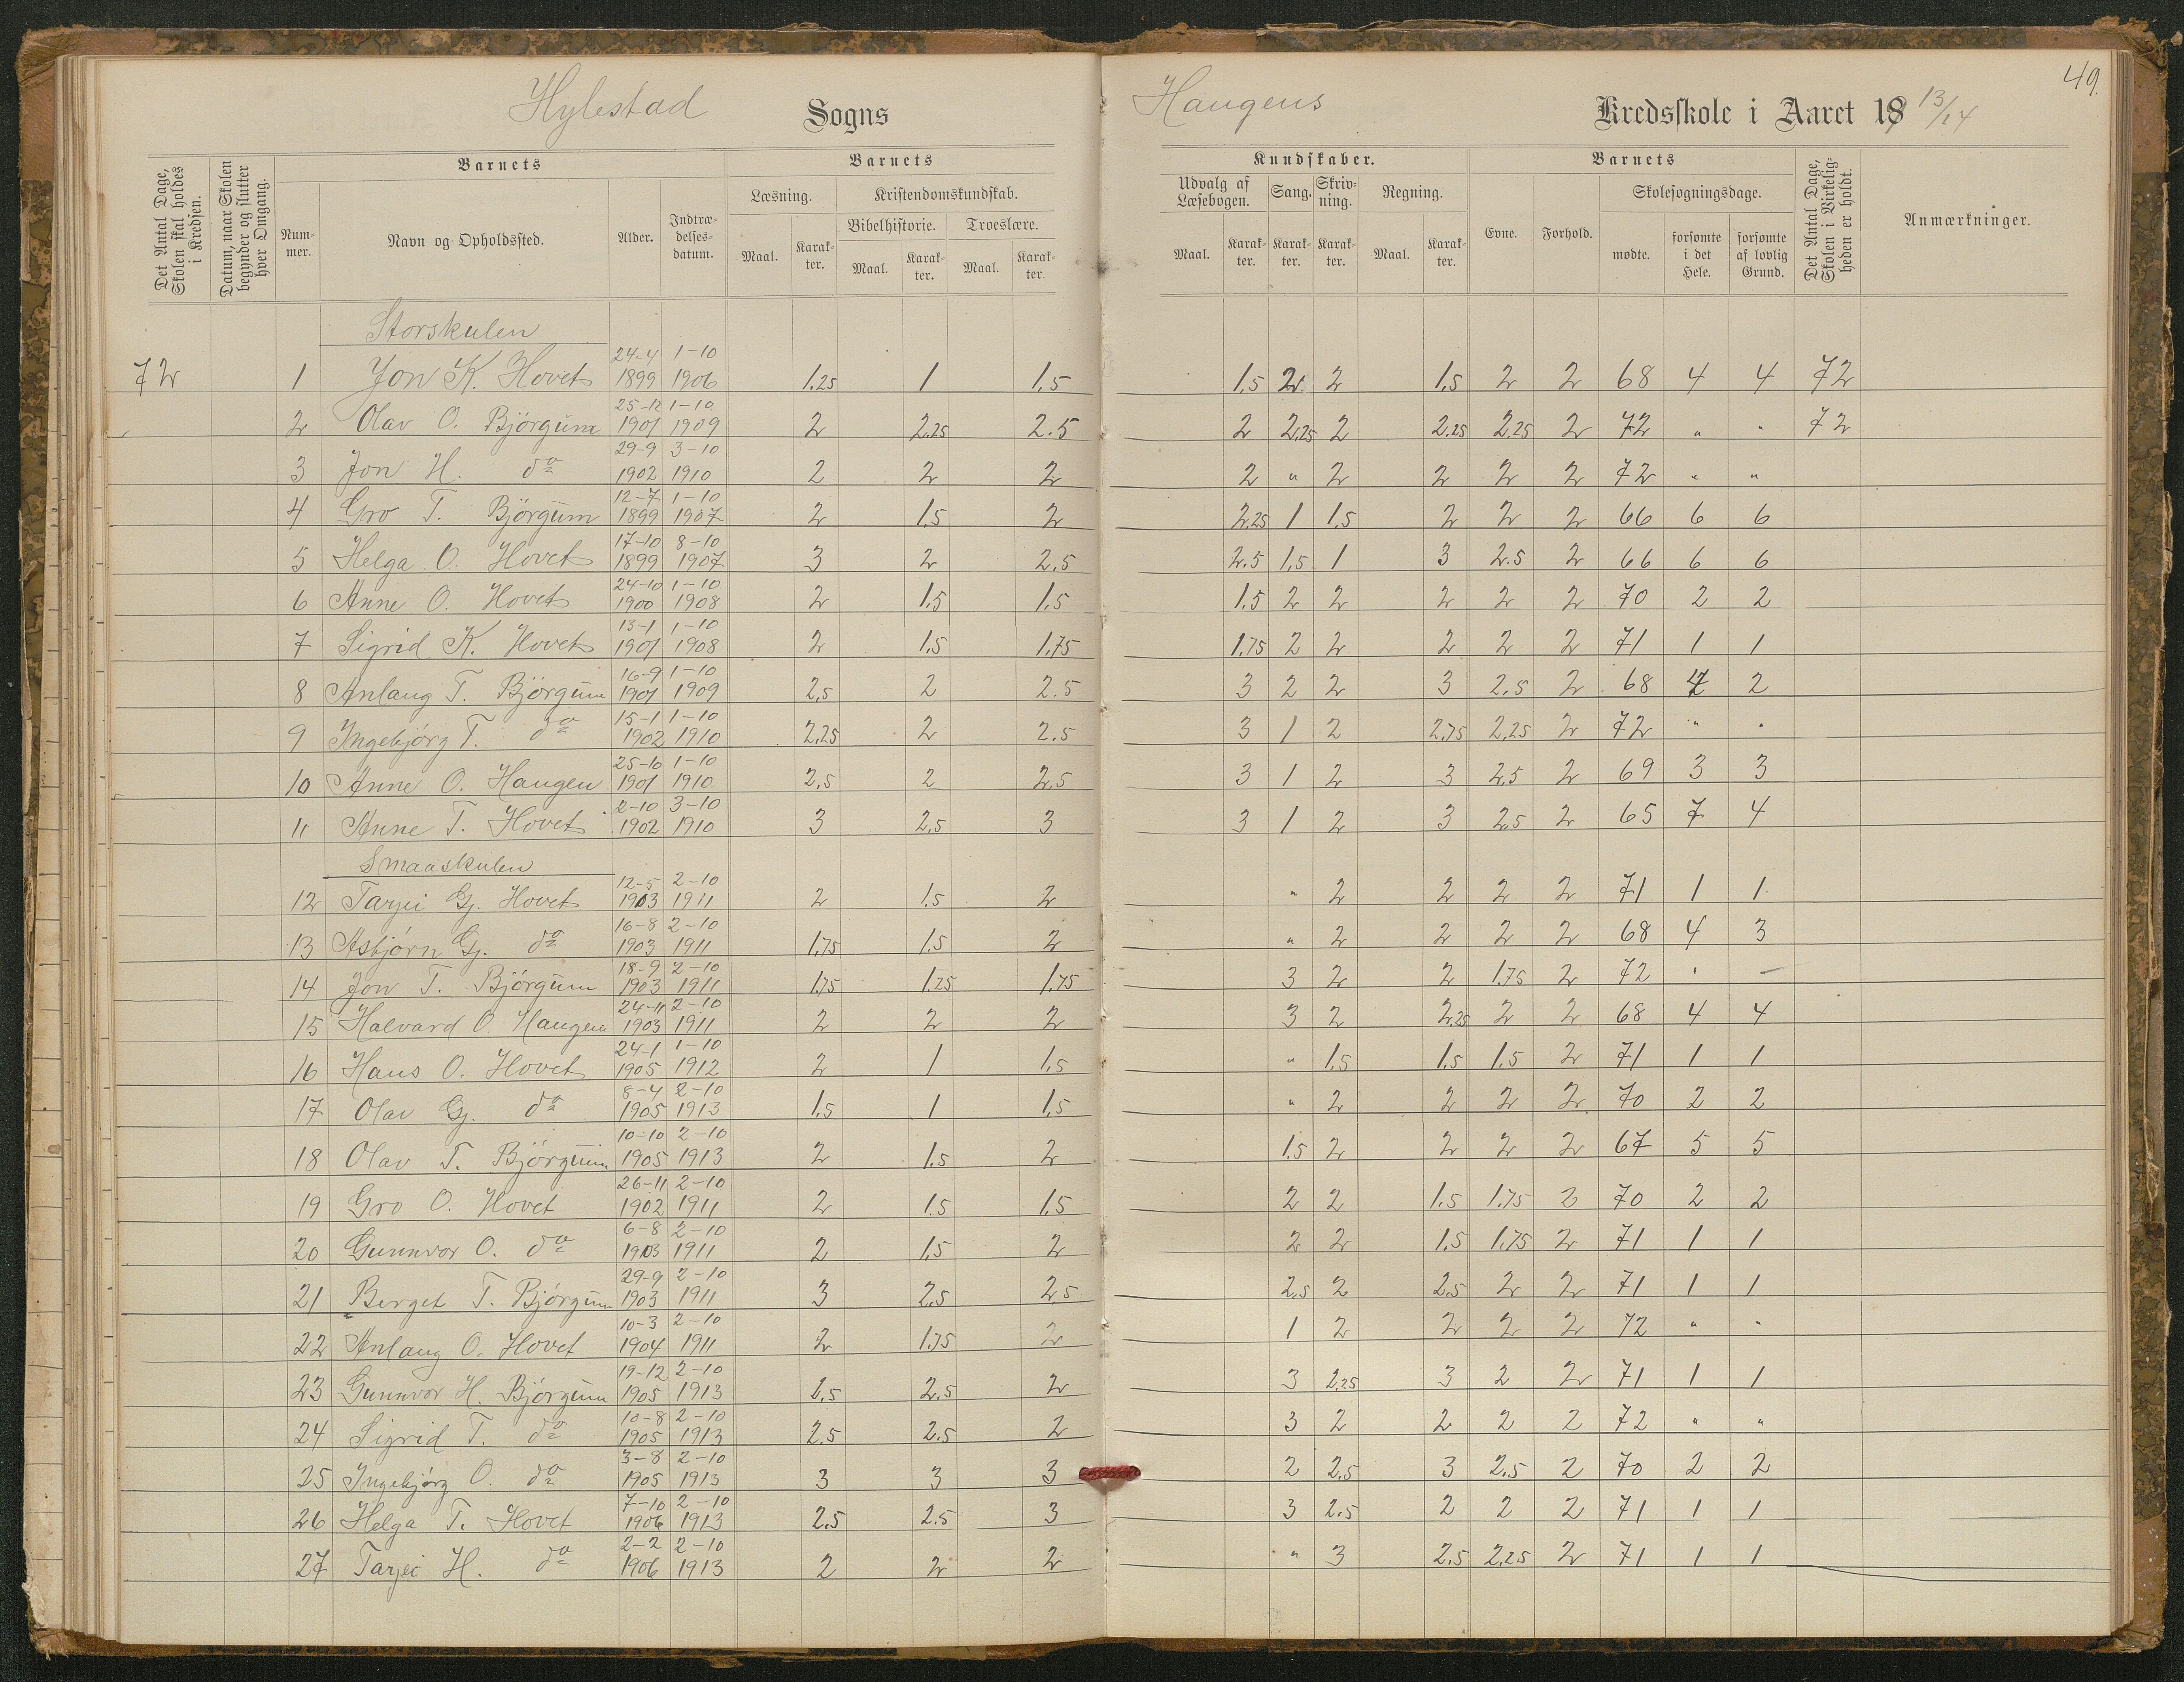 49.
Hylestad Sogns Haugens Kredsskole i Aaret 1913/14
Det Antal Dage, Skolen skal holdes i Kredsen.
Datum, naar Skolen begynder og slutter hver Omgang.
Barnets
Nummer.
Navn og Opholdssted.
Alder.
Indtrædelsesdatum.
Barnets
Læsning.
Maal.
Karakter.
Kristendomskundskab.
Bibelhistorie.
Maal.
Karakter.
Troeslære.
Maal.
Karakter.
Kundskaber.
Udvalg af Læsebogen.
Maal.
Karakter.
Sang.
Karakter.
Skrivning.
Karakter.
Regning.
Maal.
Karakter.
Barnets
Evne.
Forhold.
Skolesøgningsdage.
mødte.
forsømte i det Hele.
forsømte af lovlig Grund.
Det Antal Dage, Skolen i Virkeligheden er holdt.
Anmærkninger.
Storskulen
72 1 Jon K. Hovet 24-4 1899 1-10 1906 1.25 1 1.5 1.5 2 2 1.5 2 2 68 4 4 72
2 Olav O. Bjørgum 25-12 1901 1-10 1909 2 2.25 2.5 2 2.25 2 2.25 2.25 2 72 " " 72
3 Jon H. do 29-9 1902 3-10 1910 2 2 2 2 " 2 2 2 2 72 " "
4 Gro T. Bjørgum 12-7 1899 1-10 1907 2 1.5 2 2.25 1 1.5 2 2 2 66 6 6
5 Helga O. Hovet 17-10 1899 8-10 1907 3 2 2.5 2.5 1.5 1 3 2.5 2 66 6 6
6 Anne O. Hovet 24-10 1900 1-10 1908 2 1.5 1.5 1.5 2 2 2 2 2 70 2 2
7 Sigrid K. Hovet 13-1 1901 1-10 1908 2 1.5 1.75 1.75 2 2 2 2 2 71 1 1
8 Anlaug T. Bjørgum 16-9 1901 1-10 1909 2.5 2 2.5 3 2 2 3 2.5 2 68 4 2
9 Ingebjørg T. do 15-1 1902 1-10 1910 2.25 2 2.5 3 1 2 2.75 2.25 2 72 " "
10 Anne O. Haugen 25-10 1901 1-10 1910 2.5 2 2.5 3 1 2 3 2.5 2 69 3 3
11 Anne T. Hovet 2-10 1902 3-10 1910 3 2.5 3 3 1 2 3 2.5 2 65 7 4
Smaaskulen
12 Tarjei Gj. Hovet 12-5 1903 2-10 1911 2 1.5 2 " 2 2 2 2 71 1 1
13 Asbjørn Gj. do 16-8 1903 2-10 1911 1.75 1.5 2 " 2 2 2 2 68 4 3
14 Jon T. Bjørgum 18-9 1903 2-10 1911 1.75 1.25 1.75 3 2 2 1.75 2 72 " -
15 Halvard O. Haugen 24-11 1903 2-10 1911 2 2 2 3 2 2.25 2 2 68 4 4
16 Hans O. Hovet 24-1 1905 1-10 1912 2 1 1.5 " 1.5 1.5 1.5 2 71 1 1
17 Olav Gj. do 8-4 1905 2-10 1913 1.5 1 1.5 " 2 2 2 2 70 2 2
18 Olav T. Bjørgum 10-10 1905 2-10 1913 2 1.5 2 1.5 2 2 2 2 67 5 5
19 Gro O. Hovet 26-11 1902 2-10 1911 2 1.5 1.5 2 2 1.5 1.75 2 70 2 2
20 Gunnvor O. do 6-8 1903 2-10 1911 2 1.5 2 2 2 1.5 1.75 2 71 1 1
21 Berget T. Bjørgum 29-9 1903 2-10 1911 3 2.5 2.5 2.5 2 2.5 2 2 71 1 1
22 Anlaug O. Hovet 10-3 1904 2-10 1911 2 1.75 2 1 2 2 2 2 72 " "
23 Gunnvor H. Bjørgum 19-12 1905 2-10 1913 1.5 2.5 2 3 2.25 3 2 2 71 1 1
24 Sigrid T. do 10-8 1905 2-10 1913 2.5 2.5 2 3 2 2 2 2 72 " "
25 Ingebjørg O. do 3-8 1905 2-10 1913 3 3 3 2 2.5 3 2.5 2 70 2 2
26 Helga T. Hovet 7-10 1906 2-10 1913 2.5 2.5 3 3 2.5 2 2 2 71 1 1
27 Tarjei H. do 2-2 1906 2-10 1913 2 2 2 " 3 2.5 2.25 2 71 1 1